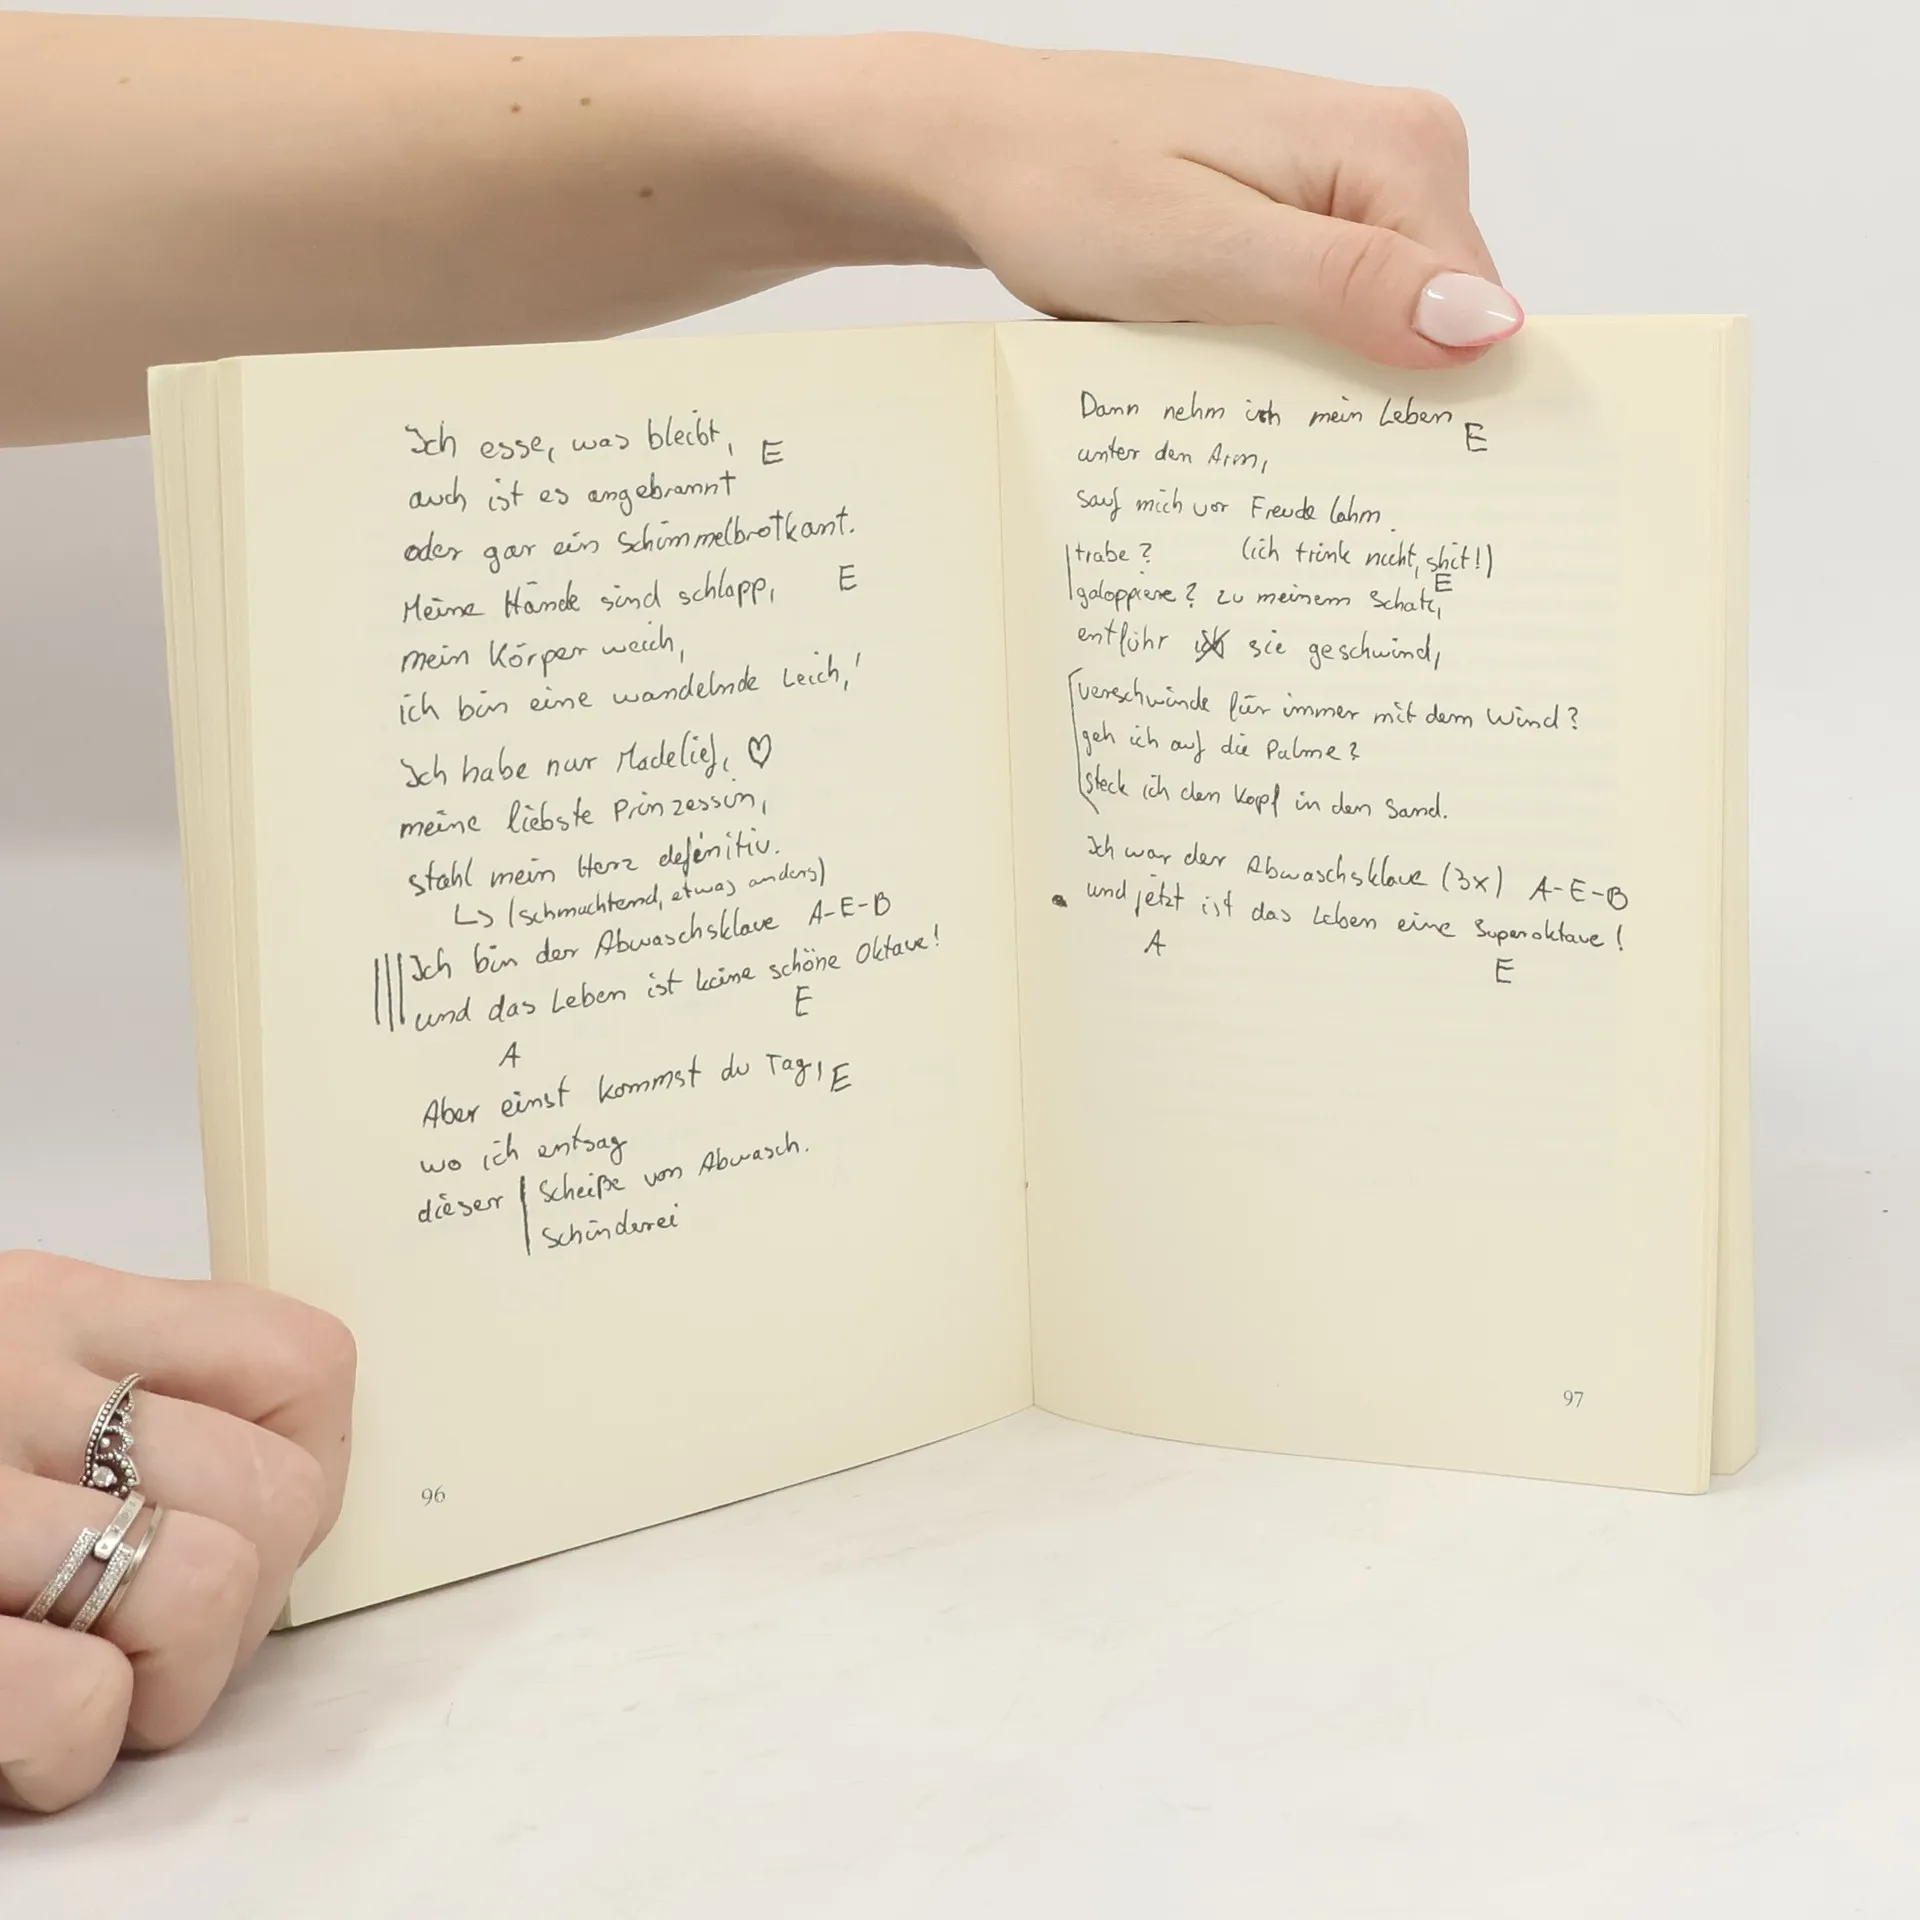 Ich esse, was bleibt, E
auch ist es angebrannt
oder gar ein Schimmelbrotkant.
Meine Hände sind schlapp, E
mein Körper weich,
ich bin eine wandelnde Leich,!
Ich habe nur Madelief, ♡
meine liebste Prinzessin,
stahl mein Herz definitiv.
↳ (schmachtend, etwas anders)
Ich bin der Abwaschsklave A-E-B
und das Leben ist keine schöne Oktave!
A E
Aber einst kommst du Tag, E
wo ich entsag
dieser Scheiße von Abwasch.
Schinderei
96
Dann nehm ich mein Leben E
unter den Arm,
sauf mich vor Freude lahm.
trabe? (ich trink nicht, shit!)
galoppiere? zu meinem Schatz, E
entführ ich sie geschwind,
verschwinde für immer mit dem Wind?
geh ich auf die Palme?
steck ich den Kopf in den Sand.
Ich war der Abwaschsklave (3x) A-E-B
und jetzt ist das Leben eine Superoktave!
A E
97